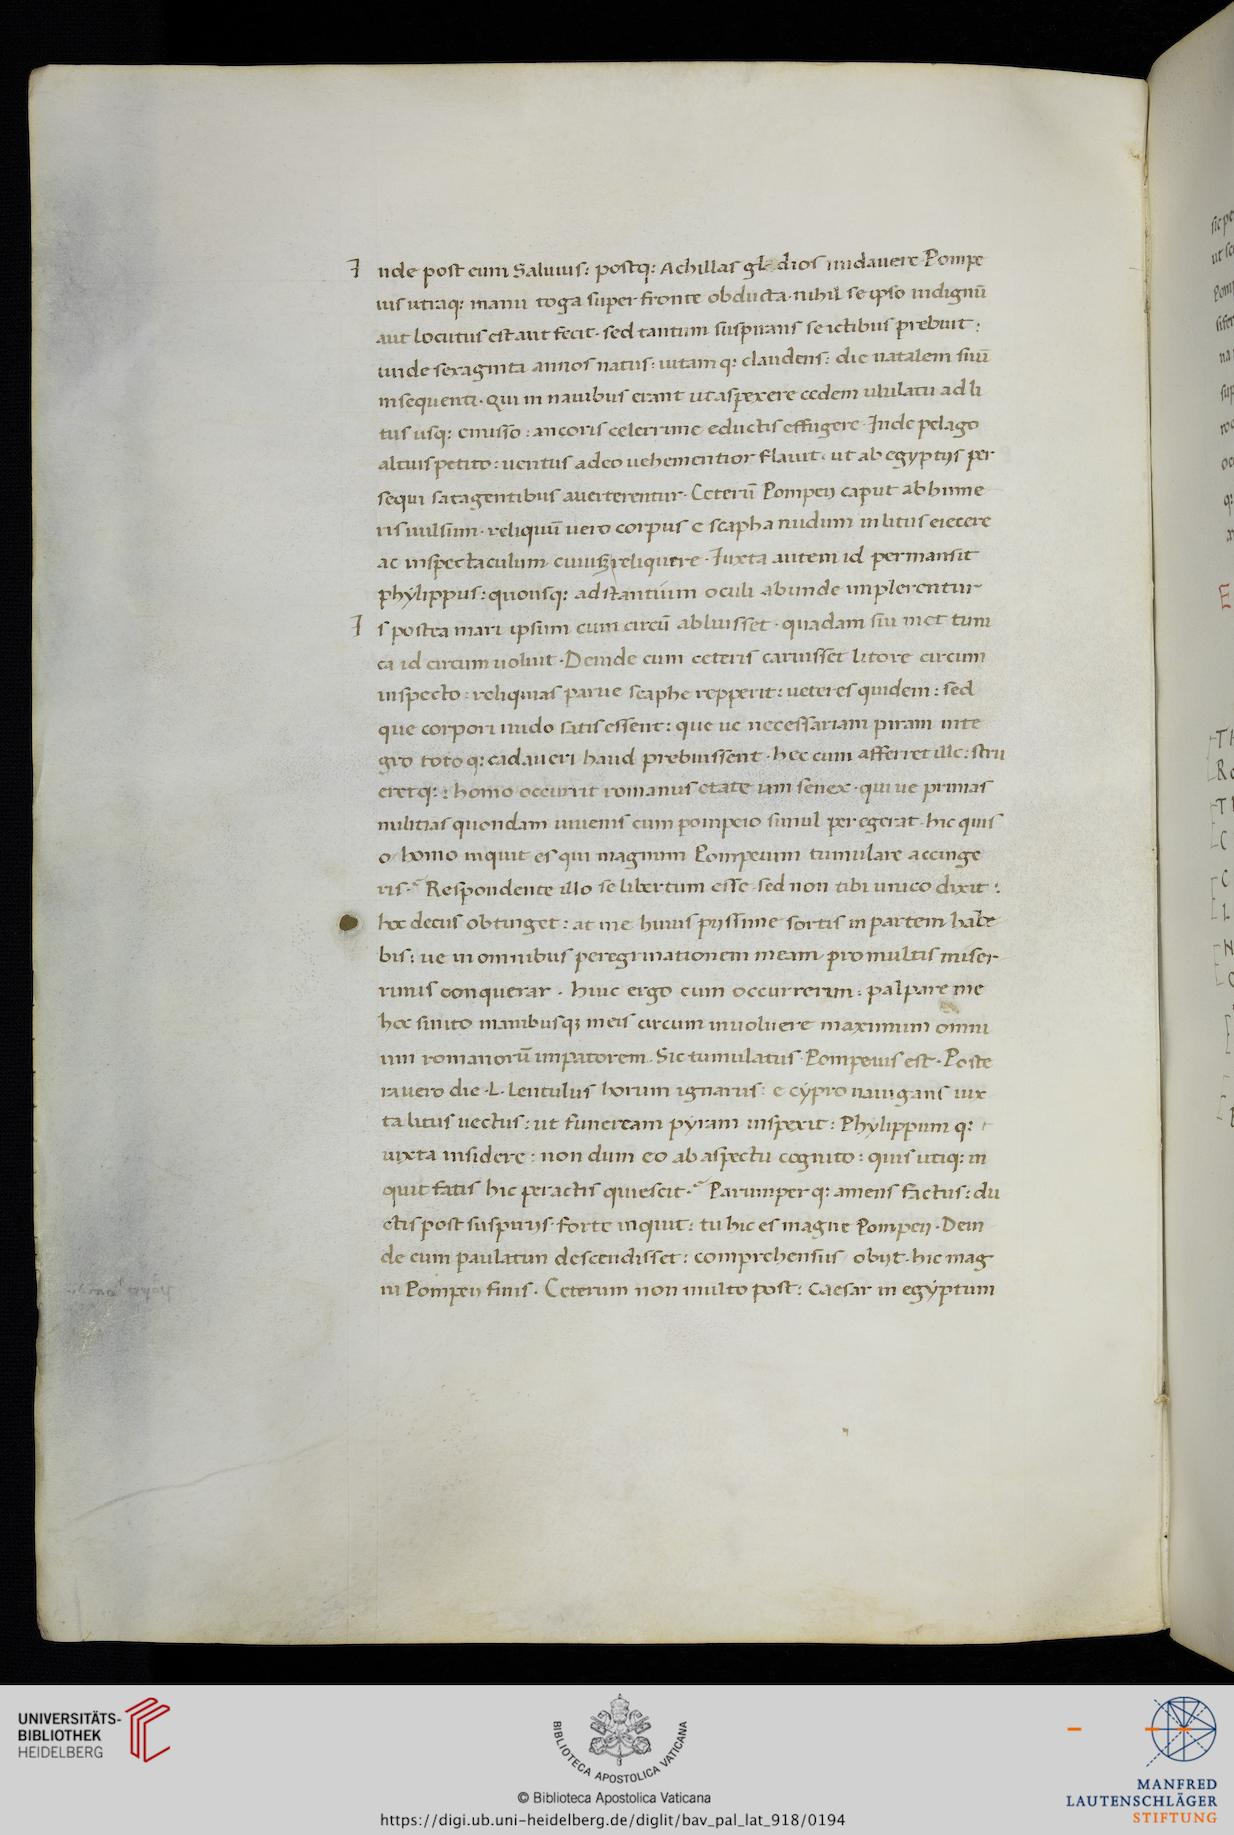 Inde post eum Saluius: postq: Achillas gladios nudauere Pompe
ius utraq: manu toga super fronte obducta. nihil se ipso indignū
aut locutus est aut fecit. sed tantum suspirans se ictibus prebuit:
unde sexaginta annos natus: uitam q: claudens: die natalem suū
insequenti. Qui in nauibus erant ut aspexere cedem ululatu ad li
tus usq: emisso: ancoris celerrime eductis effugere. Inde pelago
altius petito: uentus adeo uehementior flauit. ut ab egyptijs per
sequi satagentibus auerterentur. Ceterū Pompeij caput ab hume
ris uulsum. reliquū uero corpus e scapha nudum in litus eiecere
ac in spectaculum cuiusq reliquere. Iuxta autem id permansit
phylippus: quousq: adstantium oculi abunde implerentur
Is postea mari ipsum cum circū abluisset. quadam sui met tuni
ca id circum uoluit. Deinde cum ceteris caruisset litore circum
inspecto: reliquias parue scaphe repperit: ueteres quidem: sed
que corpori nudo satis essent: que ue necessariam piram inte
gro toto q: cadaueri haud prebuissent. hec cum afferret ille: stru
eretq: : homo occurrit romanus etate iam senex. qui ue primas
militias quondam iuuenis cum pompeio simul peregerat. hic quis
o homo inquit es qui magnum Pompeium tumulare accinge
ris.? Respondente illo se libertum esse. sed non tibi unico dixit:
hoc decus obtinget: at me huius pijssime sortis in partem habe
bis: ue in omnibus peregrinationem meam pro multis miser
rimis conquerar. huic ergo cum occurrerim: palpare me
hoc sinito manibusq; meis circum inuoluere maximum omni
um romanorū impatorem. Sic tumulatus Pompeius est. Poste
ra uero die .L. lentulus horum ignarus: e cypro nauigans iux
ta litus uectus: ut funeream pyram inspexit: Phylippum q:
iuxta insidere: non dum eo ab aspectu cognito: quis utiq: in
quit fatis hic peractis quiescit.? Parumper q: amens factus: du
ctis post suspirijs forte inquit: tu hic es magne Pompeij. Dein
de cum paulatim descendisset: comprehensus obijt. hic mag
ni Pompeij finis. Ceterum non multo post: Caesar in egyptum
UNIVERSITÄTS-
BIBLIOTHEK
HEIDELBERG
BIBLIOTECA APOSTOLICA VATICANA
© Biblioteca Apostolica Vaticana
https://digi.ub.uni-heidelberg.de/diglit/bav_pal_lat_918/0194
MANFRED
LAUTENSCHLÄGER
STIFTUNG